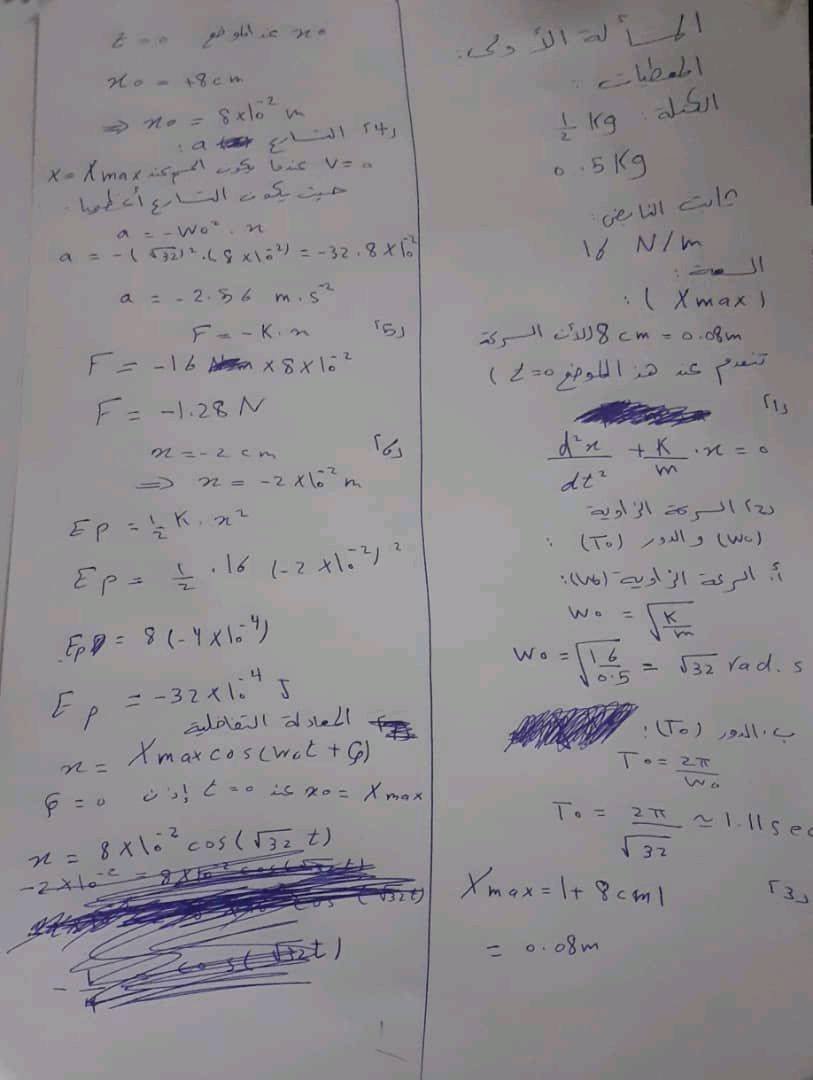 المسألة الأولى:
المعطيات:
الكتلة: ½ Kg
0.5 Kg
ثابت النابض:
16 N/m
السعة:
(Xmax):
8 cm = 0.08m (لأن السرعة
تنعدم عند هذا الموضع t=0)
1)
d²x/dt² + K/m · x = 0
2) السرعة الزاوية
(W0) و الدور (T0):
أ. السرعة الزاوية (W0):
W0 = √(K/m)
W0 = √(16/0.5) = √32 rad.s
ب. الدور (T0):
T0 = 2π/W0
T0 = 2π/√32 ≃ 1.11 sec
3) Xmax = |+8cm|
= 0.08m
x0 عند الموضع t = 0
x0 = +8cm
⇒ x0 = 8×10⁻² m
4) التسارع a:
V=0 عندما يكون الجسم عند x = Xmax
حيث يكون التسارع أعظمياً.
a = -W0² · x
a = -(√32)² · (8×10⁻²) = -32 · 8×10⁻²
a = -2.56 m.s⁻²
5) F = -K · x
F = -16 × 8×10⁻²
F = -1.28 N
6) x = -2 cm
⇒ x = -2×10⁻² m
Ep = ½ K · x²
Ep = ½ · 16 (-2×10⁻²)²
Ep = 8(-4×10⁻⁴)
Ep = -32×10⁻⁴ J
المعادلة التفاضلية
x = Xmax cos(W0t + φ)
x0 = Xmax عند t = 0 إذن φ = 0
x = 8×10⁻² cos(√32 t)
-2×10⁻² = 8×10⁻² cos(√32 t)
cos(√32 t)